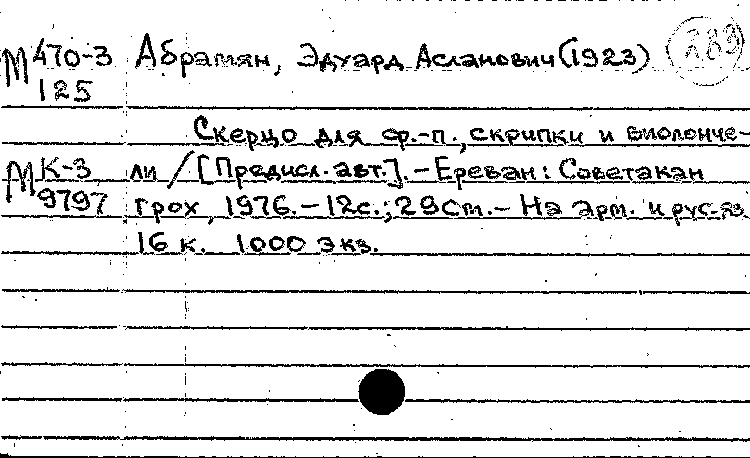 М 470-3 Абрамян, Эдуард Асланович (1923) 289
125
Скерцо для ф.-п., скрипки и виолонче-
М К-3 ли / [Предисл. авт.]. - Ереван: Советакан
9797 грох, 1976. - 12с.; 29см. - На арм. и рус. яз.
16 к. 1000 экз.